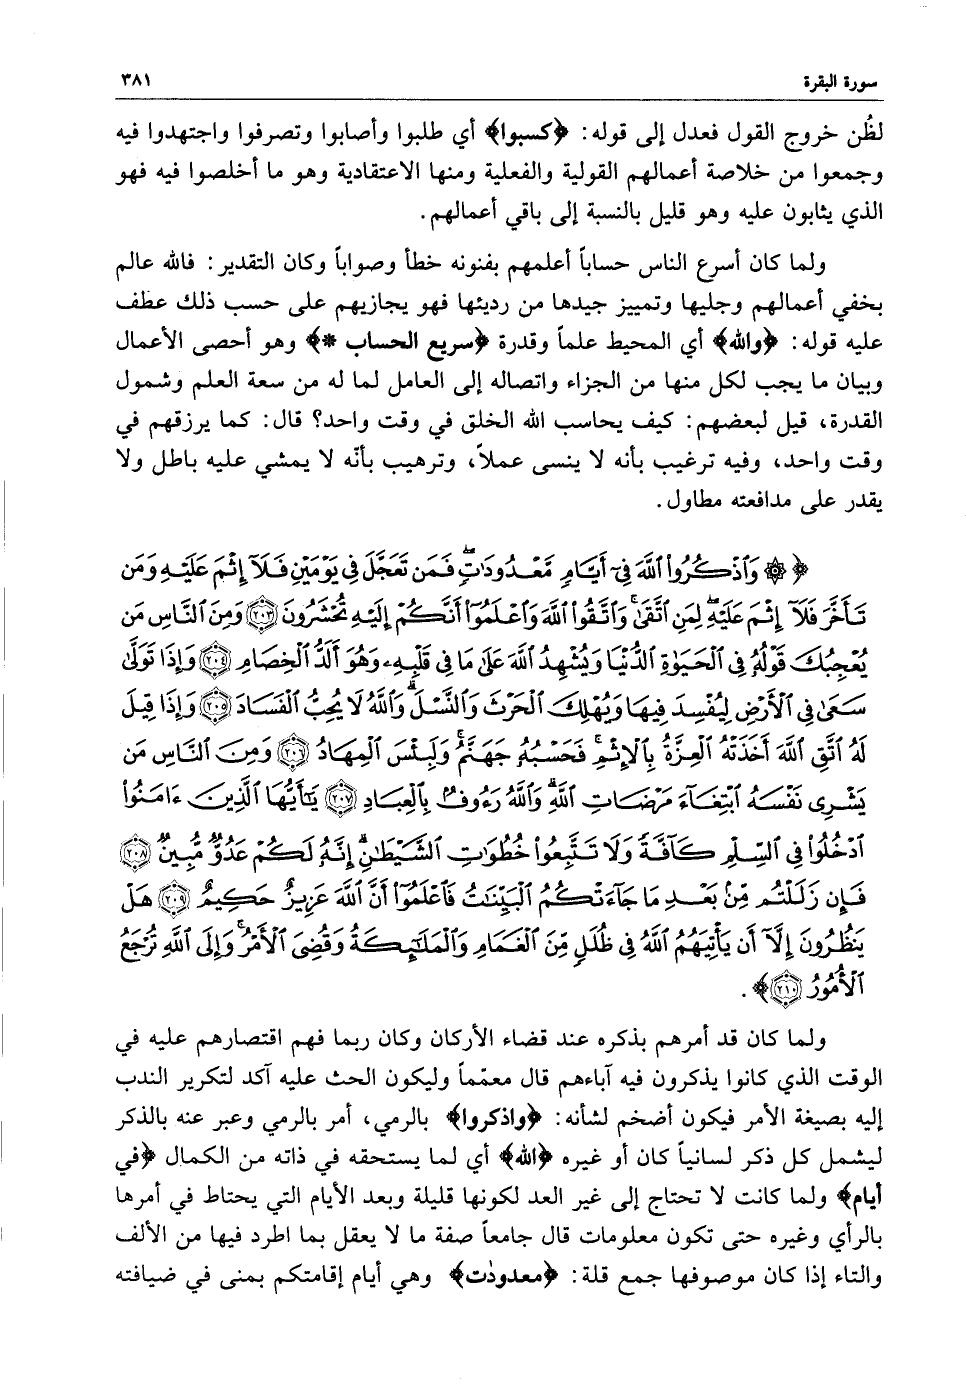 سورة البقرة ٣٨١
لظُن خروج القول فعدل إلى قوله: ﴿كسبوا﴾ أي طلبوا وأصابوا وتصرفوا واجتهدوا فيه
وجمعوا من خلاصة أعمالهم القولية والفعلية ومنها الاعتقادية وهو ما أخلصوا فيه فهو
الذي يثابون عليه وهو قليل بالنسبة إلى باقي أعمالهم.
ولما كان أسرع الناس حساباً أعلمهم بفنونه خطأ وصواباً وكان التقدير: فالله عالم
بخفي أعمالهم وجليها وتمييز جيدها من رديئها فهو يجازيهم على حسب ذلك عطف
عليه قوله: ﴿والله﴾ أي المحيط علماً وقدرة ﴿سريع الحساب *﴾ وهو أحصى الأعمال
وبيان ما يجب لكل منها من الجزاء واتصاله إلى العامل لما له من سعة العلم وشمول
القدرة، قيل لبعضهم: كيف يحاسب الله الخلق في وقت واحد؟ قال: كما يرزقهم في
وقت واحد، وفيه ترغيب بأنه لا ينسى عملاً، وترهيب بأنّه لا يمشي عليه باطل ولا
يقدر على مدافعته مطاول.
﴿۞ وَٱذْكُرُوا۟ ٱللَّهَ فِىٓ أَيَّامٍ مَّعْدُودَٰتٍ ۚ فَمَن تَعَجَّلَ فِى يَوْمَيْنِ فَلَآ إِثْمَ عَلَيْهِ وَمَن
تَأَخَّرَ فَلَآ إِثْمَ عَلَيْهِ ۚ لِمَنِ ٱتَّقَىٰ ۗ وَٱتَّقُوا۟ ٱللَّهَ وَٱعْلَمُوٓا۟ أَنَّكُمْ إِلَيْهِ تُحْشَرُونَ ٢٠٣ وَمِنَ ٱلنَّاسِ مَن
يُعْجِبُكَ قَوْلُهُۥ فِى ٱلْحَيَوٰةِ ٱلدُّنْيَا وَيُشْهِدُ ٱللَّهَ عَلَىٰ مَا فِى قَلْبِهِۦ وَهُوَ أَلَدُّ ٱلْخِصَامِ ٢٠٤ وَإِذَا تَوَلَّىٰ
سَعَىٰ فِى ٱلْأَرْضِ لِيُفْسِدَ فِيهَا وَيُهْلِكَ ٱلْحَرْثَ وَٱلنَّسْلَ ۗ وَٱللَّهُ لَا يُحِبُّ ٱلْفَسَادَ ٢٠٥ وَإِذَا قِيلَ
لَهُ ٱتَّقِ ٱللَّهَ أَخَذَتْهُ ٱلْعِزَّةُ بِٱلْإِثْمِ ۚ فَحَسْبُهُۥ جَهَنَّمُ ۚ وَلَبِئْسَ ٱلْمِهَادُ ٢٠٦ وَمِنَ ٱلنَّاسِ مَن
يَشْرِى نَفْسَهُ ٱبْتِغَآءَ مَرْضَاتِ ٱللَّهِ ۗ وَٱللَّهُ رَءُوفٌۢ بِٱلْعِبَادِ ٢٠٧ يَٰٓأَيُّهَا ٱلَّذِينَ ءَامَنُوا۟
ٱدْخُلُوا۟ فِى ٱلسِّلْمِ كَآفَّةً وَلَا تَتَّبِعُوا۟ خُطُوَٰتِ ٱلشَّيْطَٰنِ ۚ إِنَّهُۥ لَكُمْ عَدُوٌّ مُّبِينٌ ٢٠٨
فَإِن زَلَلْتُم مِّنۢ بَعْدِ مَا جَآءَتْكُمُ ٱلْبَيِّنَٰتُ فَٱعْلَمُوٓا۟ أَنَّ ٱللَّهَ عَزِيزٌ حَكِيمٌ ٢٠٩ هَلْ
يَنظُرُونَ إِلَّآ أَن يَأْتِيَهُمُ ٱللَّهُ فِى ظُلَلٍ مِّنَ ٱلْغَمَامِ وَٱلْمَلَٰٓئِكَةُ وَقُضِىَ ٱلْأَمْرُ ۚ وَإِلَى ٱللَّهِ تُرْجَعُ
ٱلْأُمُورُ ٢١٠﴾.
ولما كان قد أمرهم بذكره عند قضاء الأركان وكان ربما فهم اقتصارهم عليه في
الوقت الذي كانوا يذكرون فيه آباءهم قال معمّماً وليكون الحث عليه آكد لتكرير الندب
إليه بصيغة الأمر فيكون أضخم لشأنه: ﴿واذكروا﴾ بالرمي، أمر بالرمي وعبر عنه بالذكر
ليشمل كل ذكر لسانياً كان أو غيره ﴿الله﴾ أي لما يستحقه في ذاته من الكمال ﴿في
أيام﴾ ولما كانت لا تحتاج إلى غير العد لكونها قليلة وبعد الأيام التي يحتاط في أمرها
بالرأي وغيره حتى تكون معلومات قال جامعاً صفة ما لا يعقل بما اطرد فيها من الألف
والتاء إذا كان موصوفها جمع قلة: ﴿معدودٰت﴾ وهي أيام إقامتكم بمنى في ضيافته